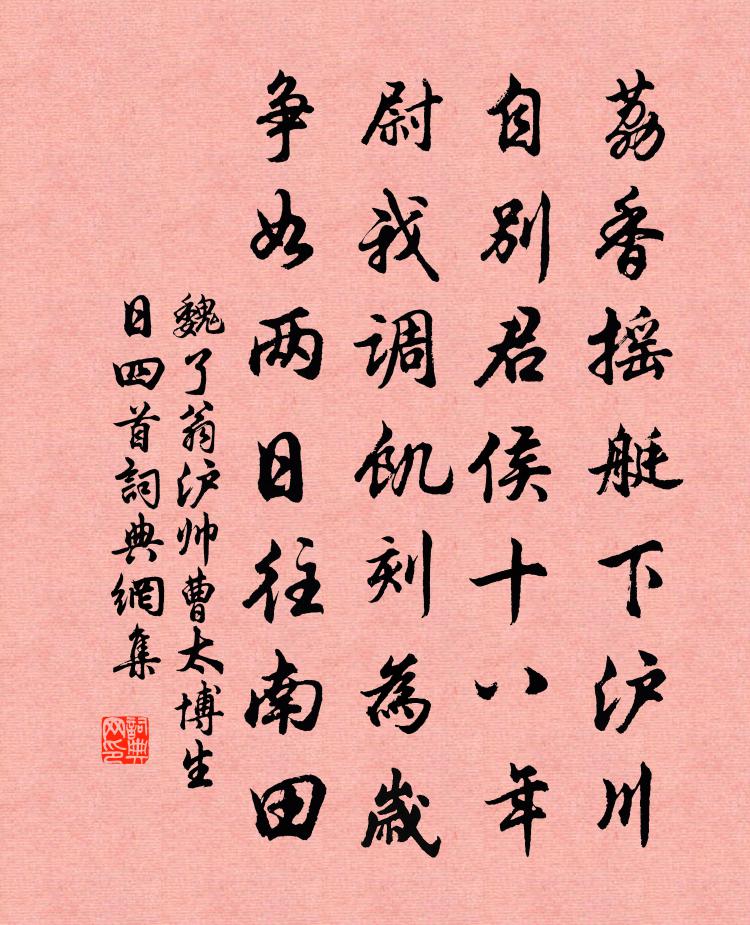 荔香摇艇下沪川
自别君侯十八年
尉我调飢刻為歲
争如两日往南田
魏了翁沪帅曹太博生
日四首詞典網集
詞典网印